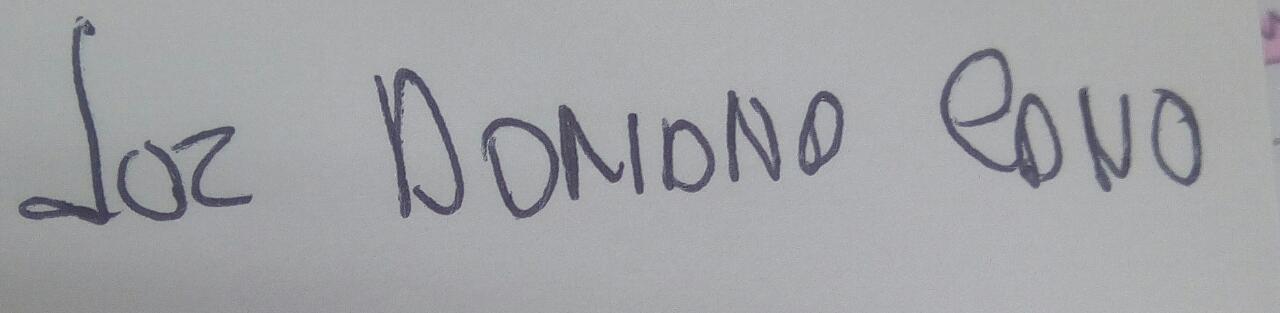 Joz DOMONO CONO